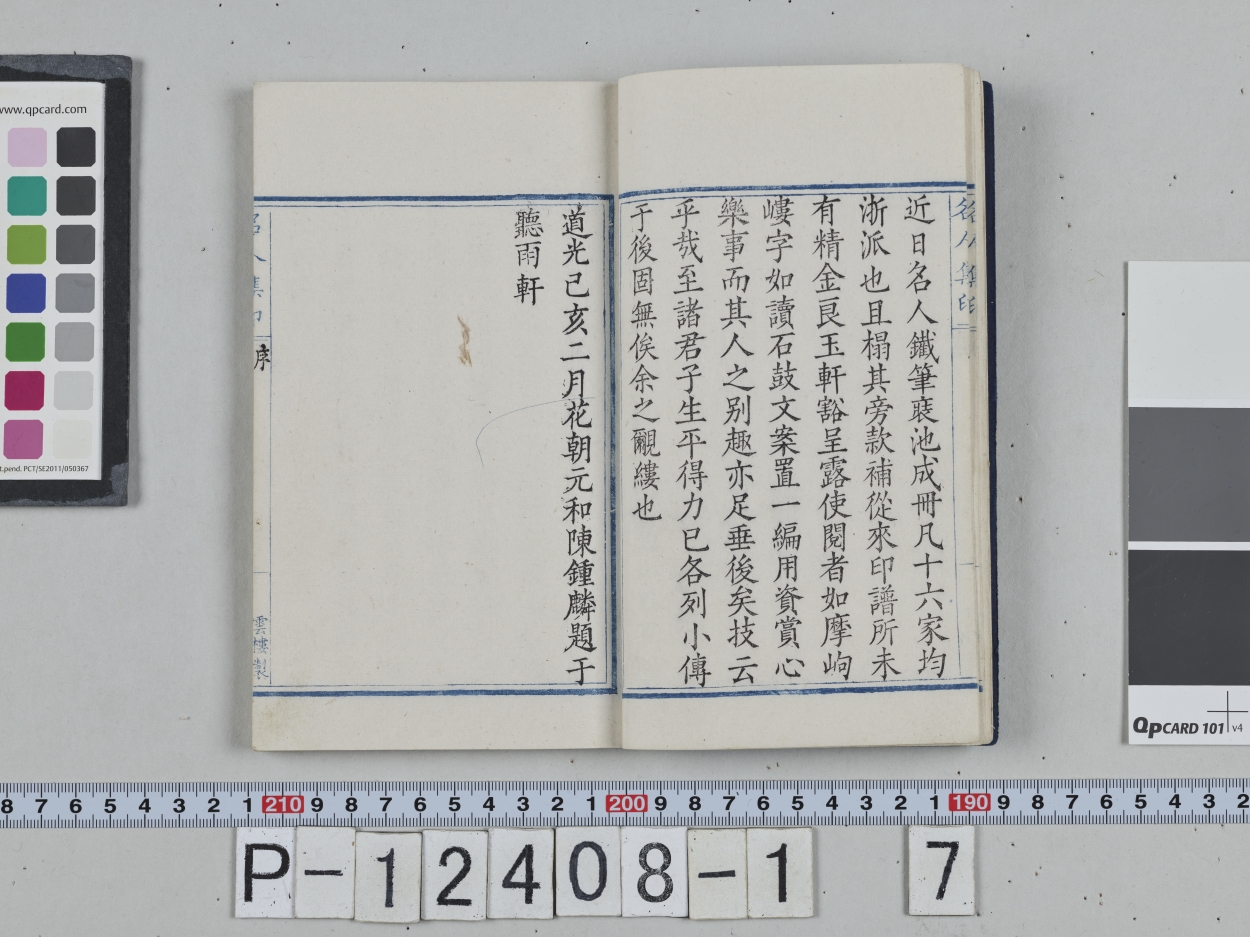 近日名人鐵筆裒池成冊凡十六家均
浙派也且榻其旁款補從來印譜所未
有精金良玉軒豁呈露使閱者如摩岣
嶁字如讀石鼓文案置一編用資賞心
樂事而其人之別趣亦足垂後矣技云
乎哉至諸君子生平得力已各列小傳
于後固無俟余之覼縷也
道光己亥二月花朝元和陳鍾麟題于
聽雨軒
名人集印
名人集印
序
雲樓製
www.qpcard.com
t.pend. PCT/SE2011/050367
QPCARD 101 v4
8 7 6 5 4 3 2 1 210 9 8 7 6 5 4 3 2 1 200 9 8 7 6 5 4 3 2 1 190 9 8 7 6 5 4 3 2
P-12408-1 7